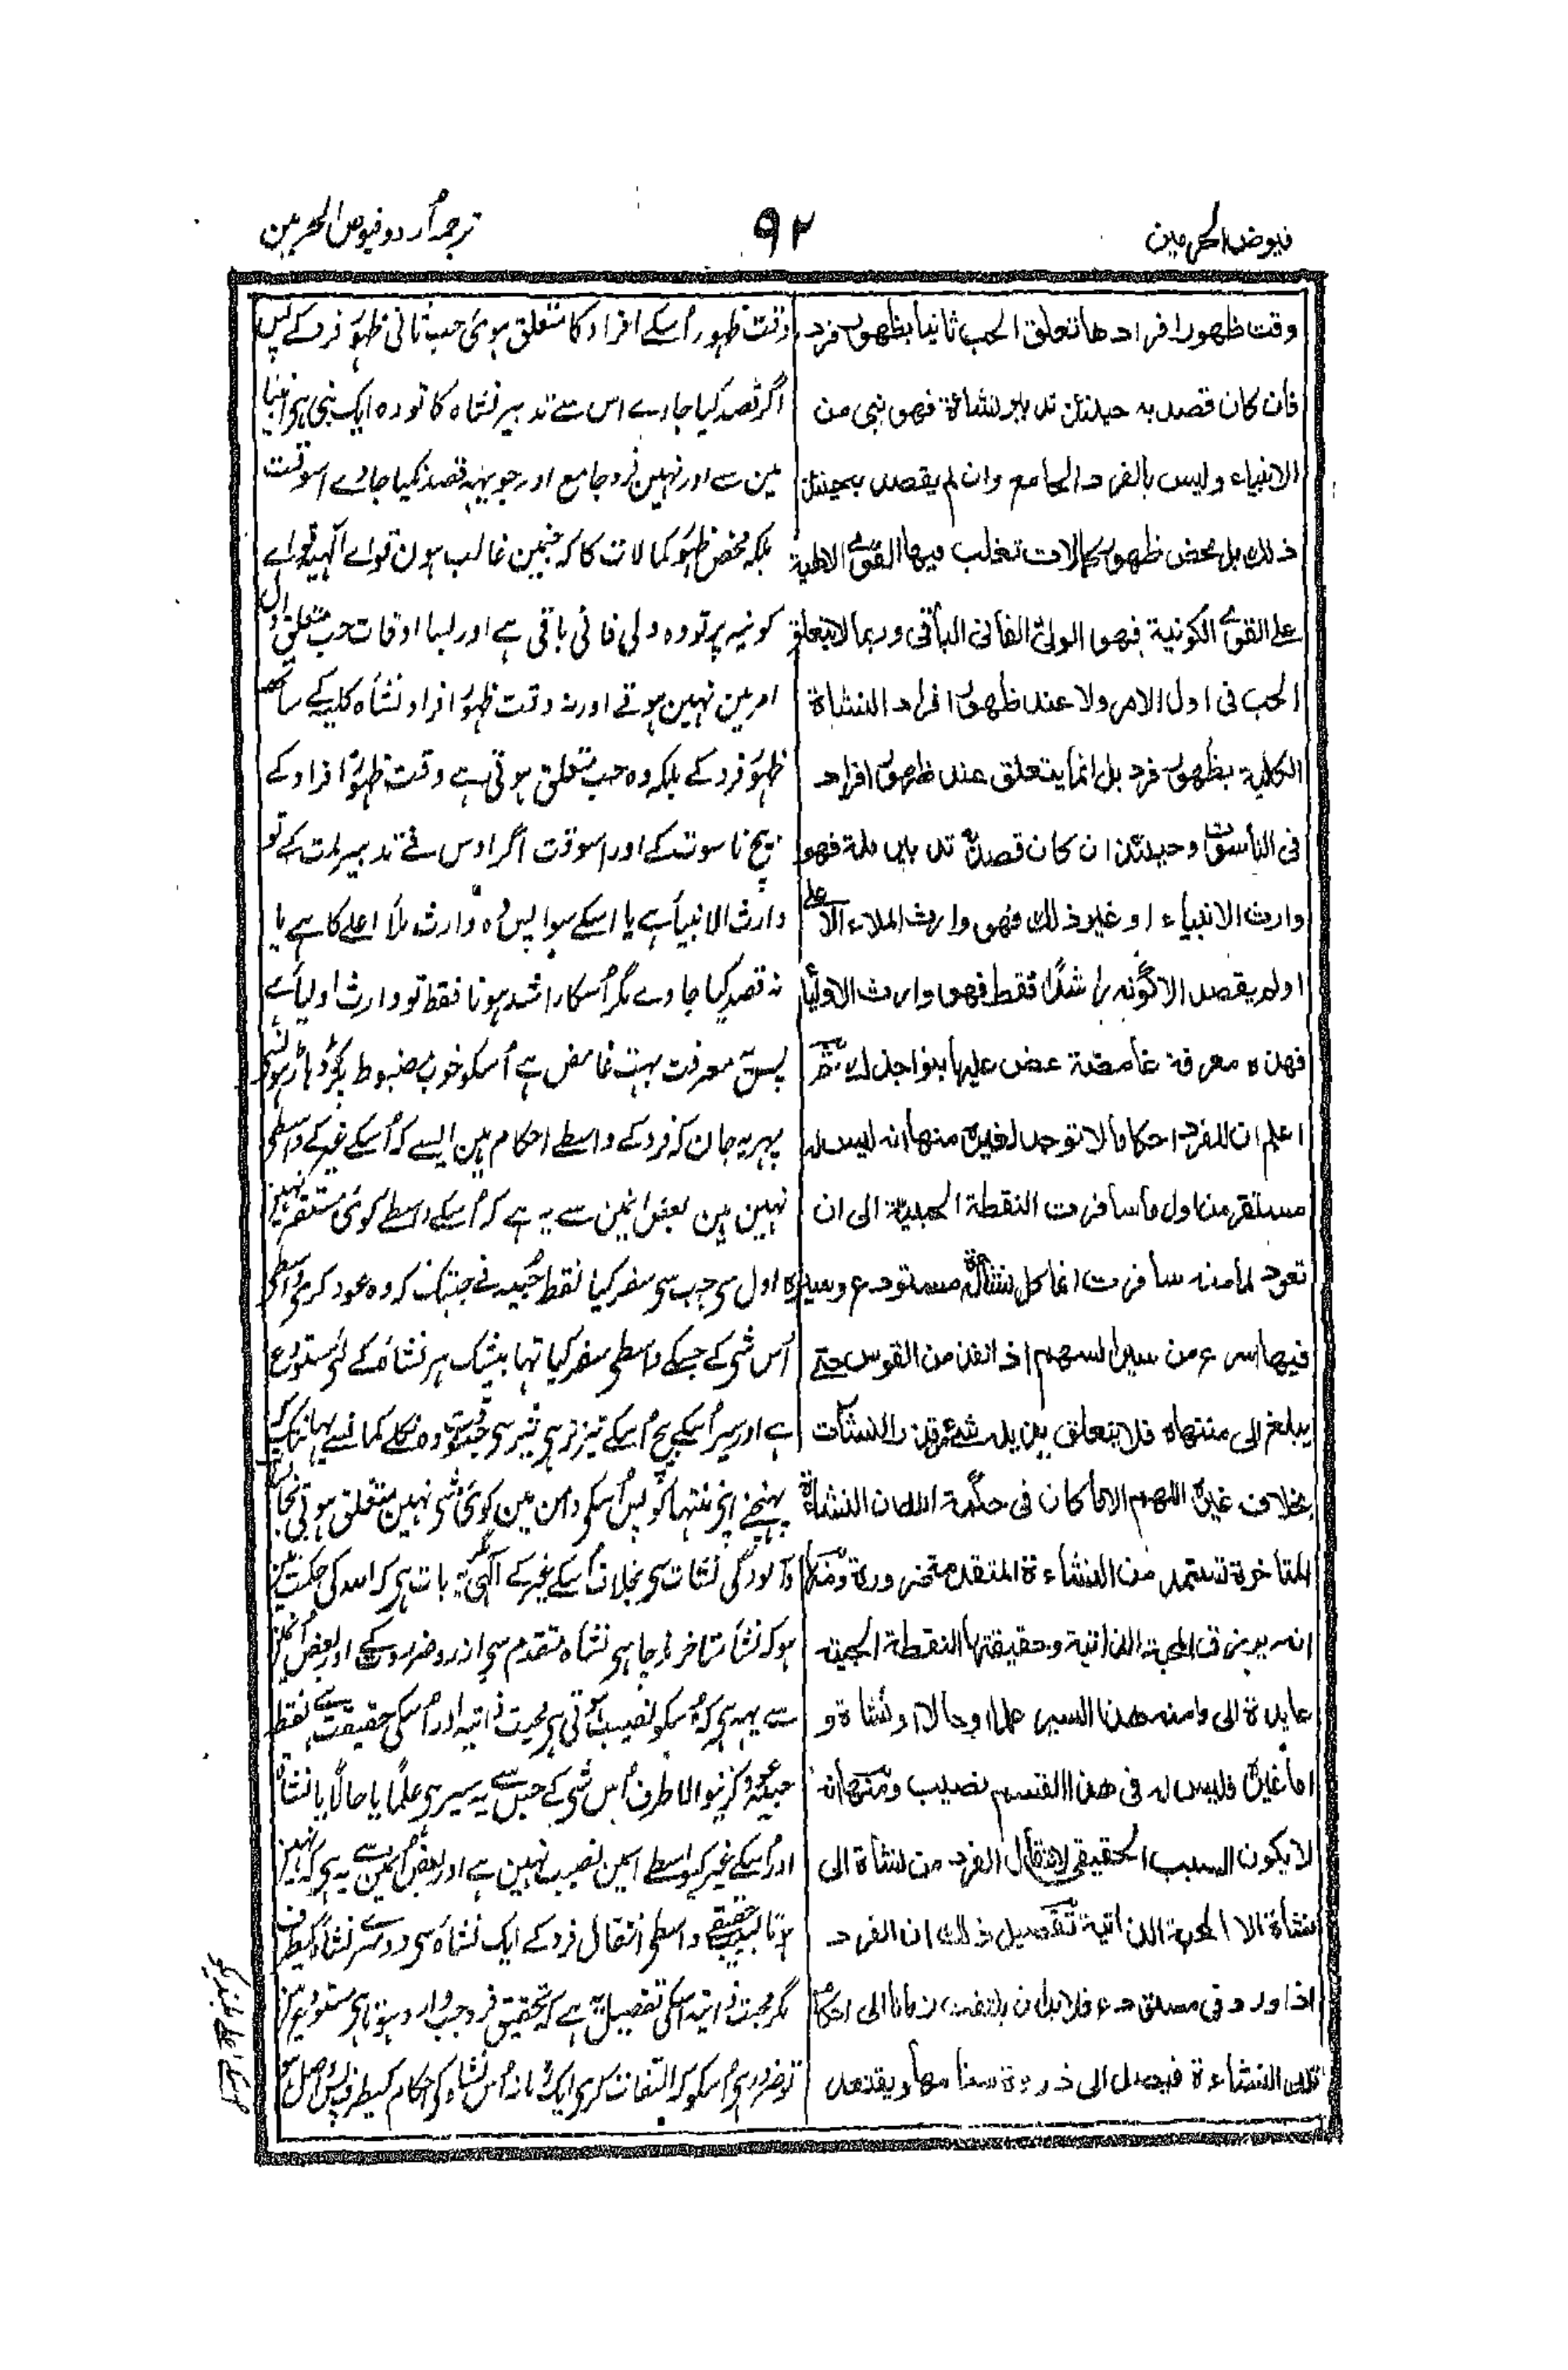 فیوض الحرمین
۹۲
ترجمہ اُردو فیوض الحرمین
وقت ظهور افرادها تعلق الحب ثانیا بظهور فرد
فان کان قصد به حینئذ تدبیر نشاءة فهو نبی من
الانبیاء ولیس بالفرد الجامع وان لم یقصد بحینئذ
ذلك بل محض ظهور کمالات تغلب فیها القوی الالهیة
علی القوی الکونیة فهو الولی الفانی الباقی وربما لا یتعلق
الحب فی اول الامر ولا عند ظهور افراد النشاة
الکلیة بظهور فرد بل انما یتعلق عند ظهور افراد
فی الناسوت وحینئذ ان کان قصده تدبیر ملة فهو
وارث الانبیاء او غیر ذلك فهو وارث الملاء الاعلی
او لم یقصد الا کونه راشدًا فقط فهو وارث الاولیا
فهذه معرفة غامضة عض علیها بنواجذك ثم
اعلم ان للفرد احکاما لا توجد لغیره منها انه لیس له
مستقر من اول ما سافرت النقطة الحبیة الی ان
تعود لما منه سافرت انما کل نشاة مستودع وسیره
فیها اسرع من سیر السهم اذ انفذ من القوس حتی
یبلغ الی منتهاه فلا یتعلق بذیله شئ من قذر النشآت
بخلاف غیره اللهم الا ما کان فی حکمة الله ان النشاءة
المتاخرة تستمد من النشاءة المتقدمة ضرورة ومنها
انه یرزق المحبة الذاتیة وحقیقتها النقطة الحبیة
عایدة الی ما منه هذا السیر علما او حالا او نشاة و
اما غیره فلیس له فی هذا القسم نصیب ومنها انه
لا یکون السبب الحقیقی لانتقال الفرد من نشاة الی
نشاة الا المحبة الذاتیة تفصیل ذلك ان الفرد
اذا ورد فی مستودع فلا بد ان یلتفت زمانا الی احکام
تلك النشاءة فیصل الی ذروة سنامها ویقتعد
وقت ظہور اُسکے افراد کا متعلق ہوئی حب ثانی ظہور فرد کے پس
اگر قصد کیا جاوے اس سے تدبیر نشاہ کا تو وہ ایک نبی ہی انبیا
مین سے اور نہین فرد جامع اور جو یہہ قصد نکیا جاوے اسوقت
بلکہ محض ظہور کمالات کا کہ جنمین غالب ہون قواے الٰہیہ قواے
کونیہ پر تو وہ ولی فانی باقی ہے اور بسا اوقات حب متعلق اول
امر مین نہین ہوتے اور نہ وقت ظہور افراد نشاہ کلیہ کے ساتھ
ظہور فرد کے بلکہ وہ حب متعلق ہوتی ہے وقت ظہور افراد کے
بیچ ناسوت کے اور اسوقت اگر اوس سے تدبیر ملت کے تو
وارث الانبیا ہے یا اسکے سوا پس وہ وارث ملاء اعلے کا ہے یا
نہ قصد کیا جاوے مگر اُسکا راشد ہونا فقط تو وارث اولیا ہے
پس یہ معرفت بہت غامض ہے اُسکو خوب مضبوط پکڑ
پہر یہ جان کہ فرد کے واسطے احکام ہین ایسے کہ اُسکے غیر کے واسطی
نہین ہین بعض انمین سے یہ ہے کہ اُسکے واسطے کوئی مستقر نہین
اول سی جب سی سفر کیا نقطہ حبیہ نے جبتک کہ وہ عود کرے واسطی
اُس شی کے جسکے واسطی سفر کیا تہا بیشک ہر نشاہ کے لئے مستودع
ہے اور سیر اُسکی بیچ اُسکے تیز تر ہی تیر سی جسوقت وہ نکلے کمان سے یہانتک کہ
پہنچے اپنی منتہا کو پس اُسکی دامن مین کوئی شی نہین متعلق ہوتی
آلودگی نشات سی بخلاف اُسکے غیر کے الٰہی یہ بات ہی کہ اللہ کی حکمت مین
ہو کہ نشات متاخر مدد چاہی نشاہ متقدم سی از روضرورت کے اور بعض انمین
سے یہہ ہی کہ اُسکو نصیب ہوتی ہی محبت ذاتیہ اور اُسکی حقیقت سے نقطہ
حبیہ عود کرنیوالا طرف اُس شی کے جس سے یہ سیر ہی علمًا یا حالًا یا نشاۃ
اور اُسکے غیر کیواسطے اسمین نصیب نہین ہے اور بعض اُنمین سے یہ ہی کہ نہین
ہوتا سبب حقیقے واسطی انتقال فرد کے ایک نشاہ سی دوسرے نشاہ کیطرف
مگر محبت ذاتیہ اسکی تفصیل یہ ہے کہ تحقیق فرد جب وارد ہوتا ہی مستودع مین
تو ضرور ہی اُسکو کہ التفات کری ایک زمانہ اُس نشاہ کی احکام کیطرف پس واصل ہو